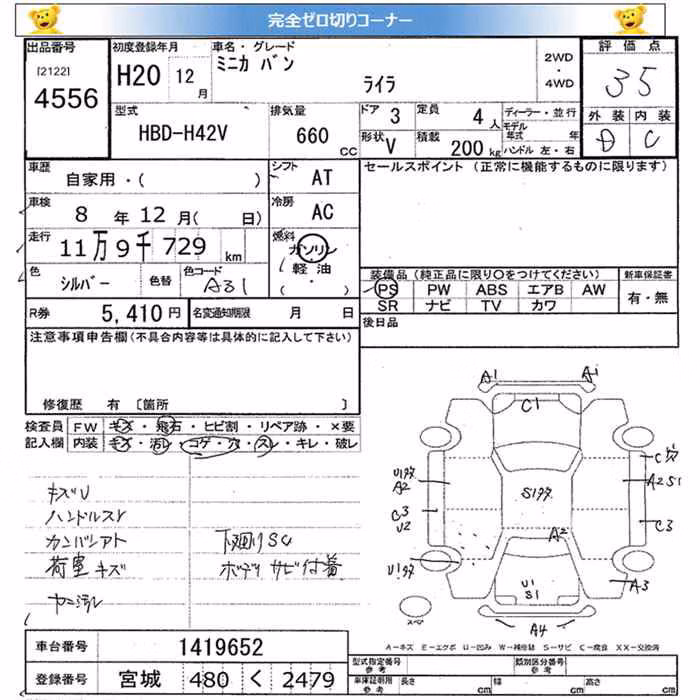 完全ゼロ切りコーナー
出品番号 [2122] 4556
初度登録年月 H20 12月
車名・グレード ミニカ バン ライラ
2WD・4WD
評価点 3 5
型式 HBD-H42V
排気量 660 CC
ドア 3 定員 4人
形状 V 積載 200kg
ディーラー・並行
モデル年式 年
ハンドル 左・右
外装 内装
D C
車歴 自家用・( )
シフト AT
セールスポイント (正常に機能するものに限ります)
車検 8年12月( 日)
冷房 AC
走行 11万9千729km
燃料 ガソリン 軽油 ( ・ )
色 シルバー 色替 色コード A31
装備品(純正品に限り〇をつけてください) 新車保証書
PS PW ABS エアB AW 有・無
SR ナビ TV カワ
R券 5,410円 名変通知期限 月 日
後日品
注意事項申告欄(不具合内容等は具体的に記入して下さい)
修復歴 有 〔箇所 〕
検査員 FW キズ・飛石・ヒビ割・リペア跡・×要
記入欄 内装 キズ・汚レ・コゲ・穴・スレ・キレ・破レ
A1
C1
C穴
U1タタ
A2
S1タタ
A2 S1
C3
U2
A2
C3
U1タタ
A3
U1
S1
A4
スペア
キズU
ハンドルスレ
下廻りSC
荷室 キズ
ボディ サビ付着
ヤニ汚レ
A=キズ E=エクボ U=凹み W=補修跡 S=サビ C=腐食 XX=交換済
車台番号 1419652
登録番号 宮城 480 く 2479
型式指定番号 参考
類別区分番号 参考
車庫証明用 参考 長さ cm 幅 cm 高さ cm